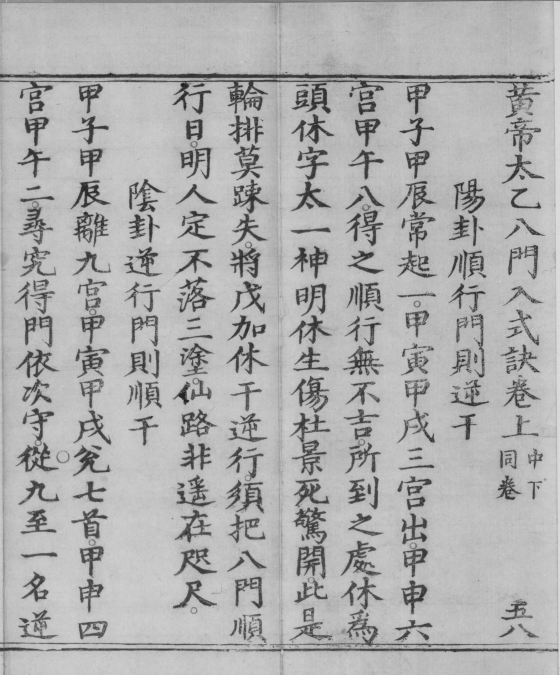 黃帝太乙八門入式訣卷上 中下同卷 五八
陽卦順行門則逆干
甲子甲辰常起一。甲寅甲戌三宮出。甲申六
宮甲午八。得之順行無不吉。所到之處休為
頭休字太一神明休生傷杜景死驚開。此是
輪排莫踈失。將戊加休干逆行。須把八門順
行日。明人定不落三塗。仙路非遥在咫尺。
陰卦逆行門則順干
甲子甲辰離九宮。甲寅甲戌兊七首。甲申四
宮甲午二。尋究得門依次守。從九至一名逆